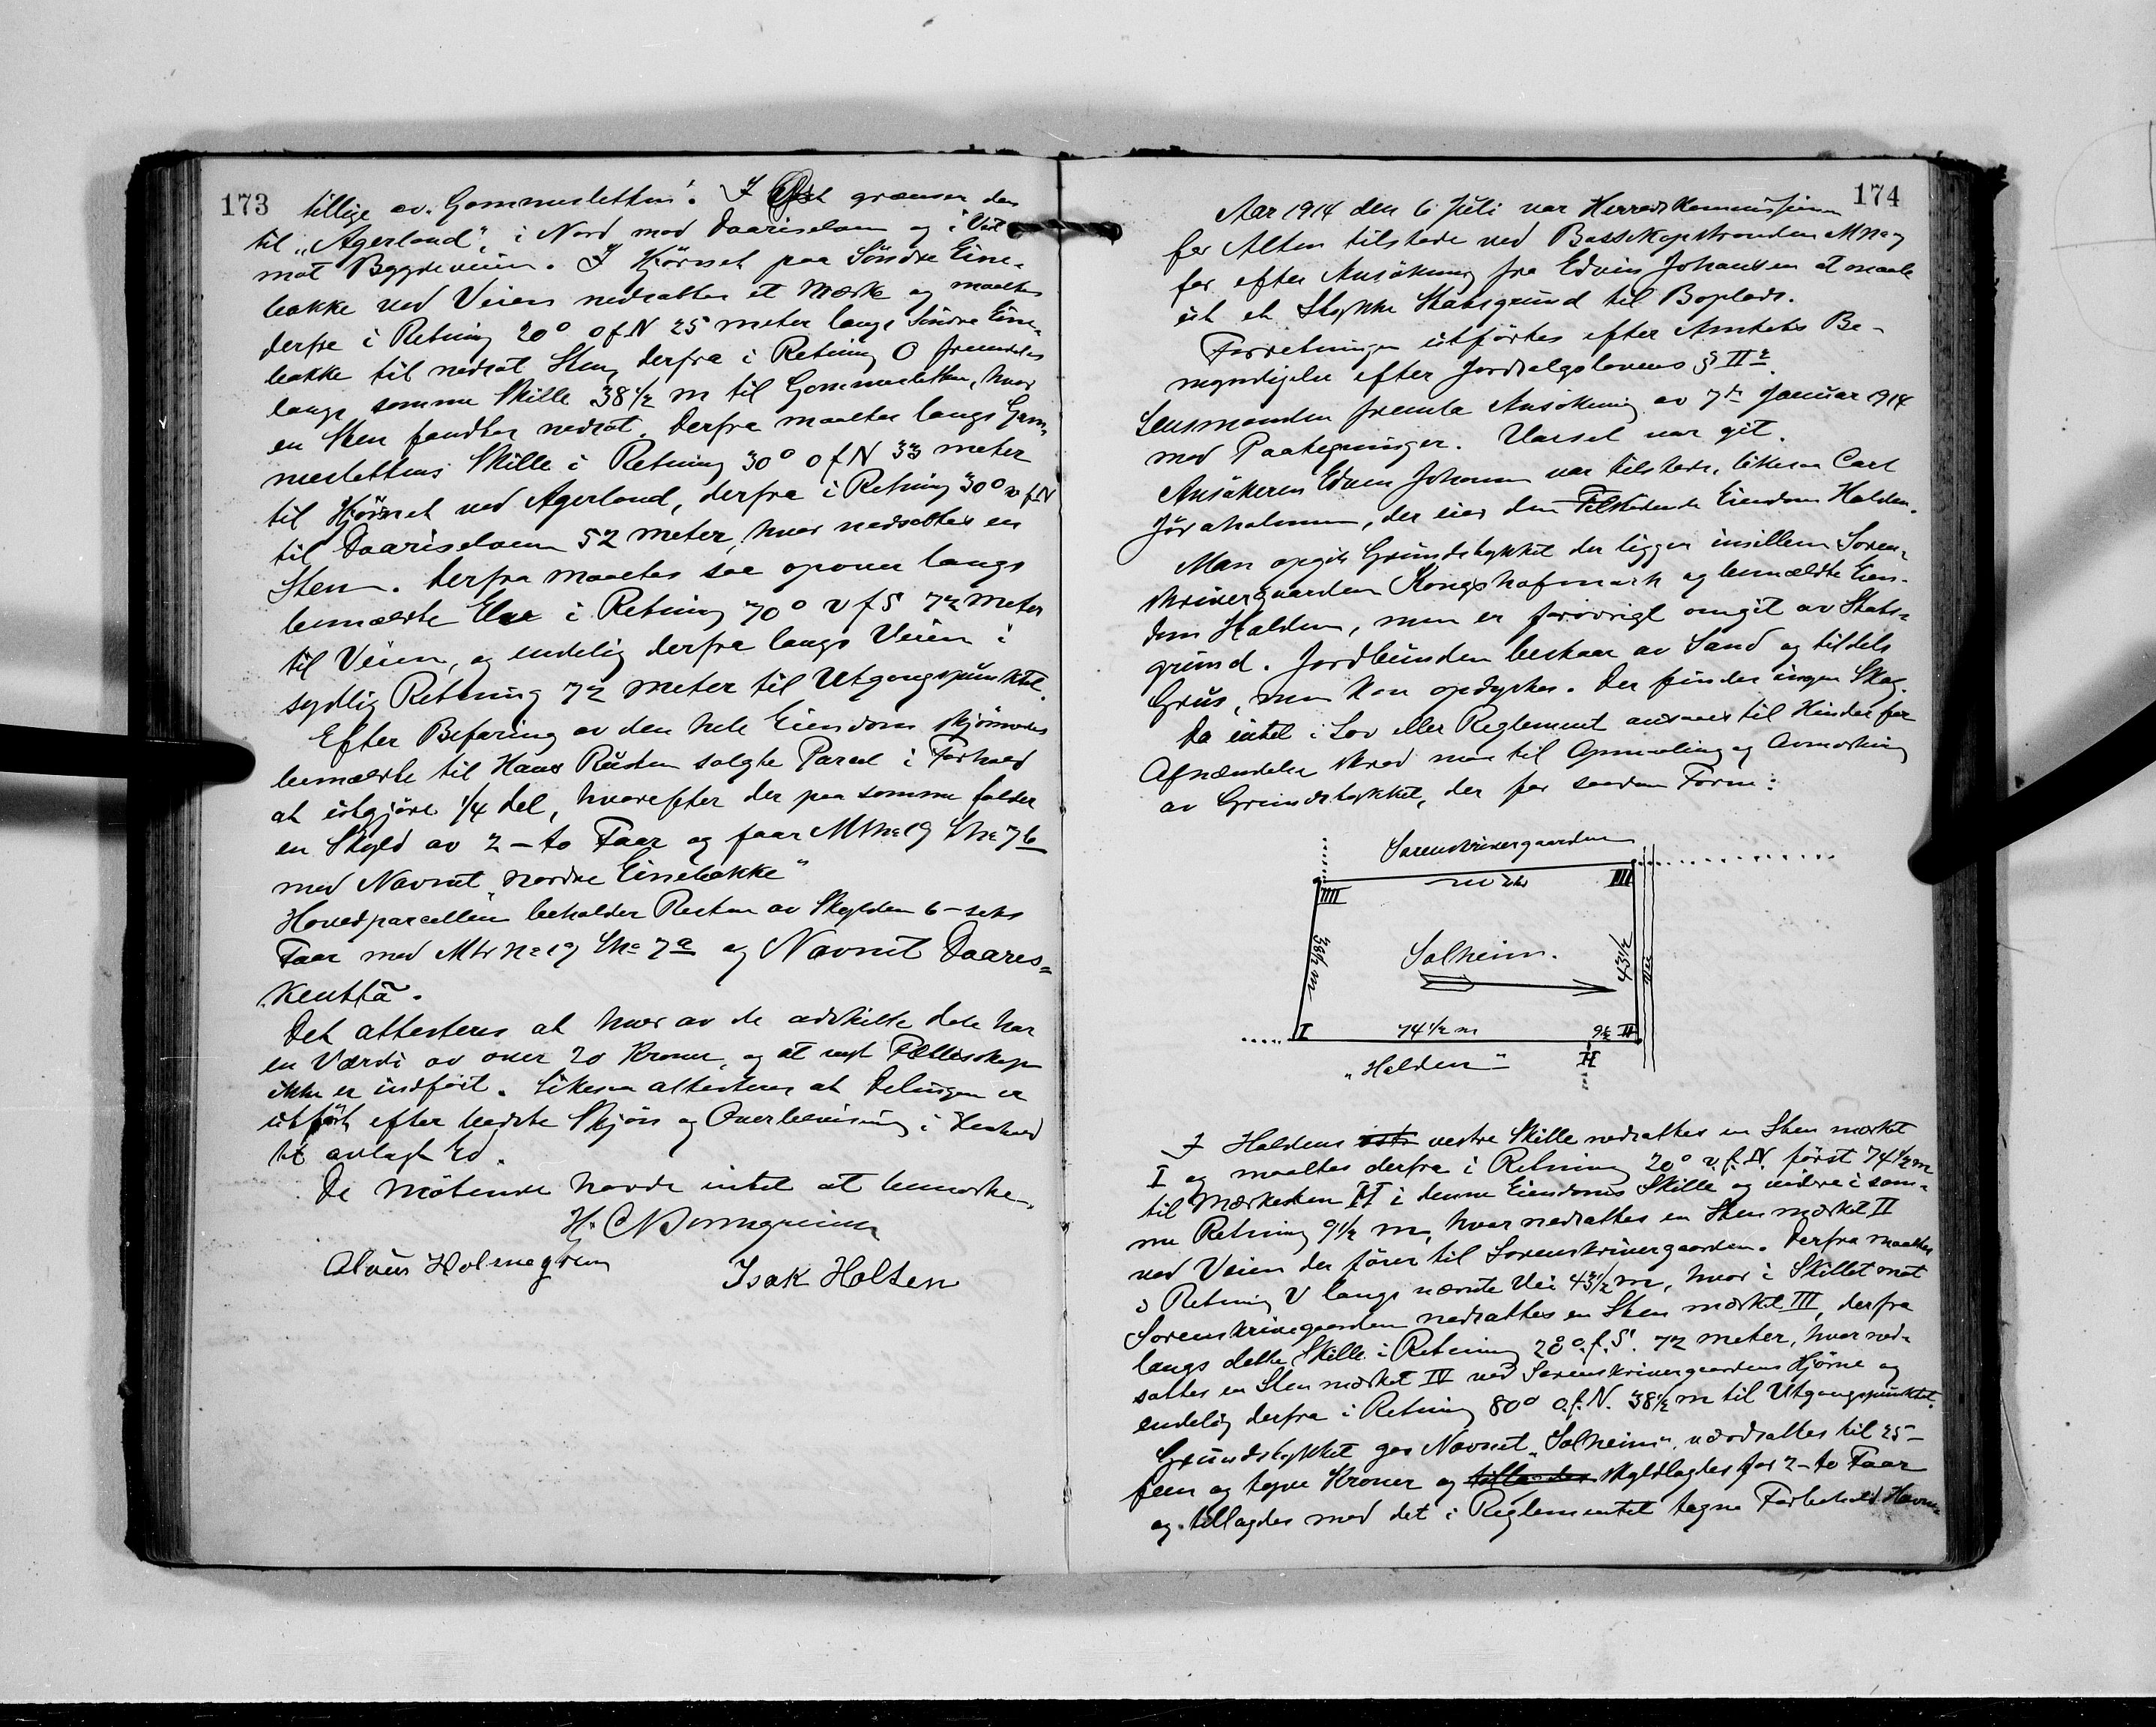 173
tillige av Gammesletten". I Øst grænser den
til "Agerland", i Nord mod Daariselven og i Vest
mot Bygdeveien. I Hjörnet paa Söndre Eine-
bakke ved Veien nedsattes et Mærke og maaltes
derfra i Retning 20° ofN 25 meter langs Söndre Eine-
bakke til nedsat Sten, derfra i Retning O fremdeles
langs samme Skille 38½ m til Gammesletten, hvor
en Sten fandtes nedsat. Derfra maaltes langs Gam-
meslettens Skille i Retning 30° ofN 33 meter
til Hjörnet ved Agerland, derfra i Retning 30° v fN
til Daariselven 52 meter, hvor nedsattes en
Sten. Derfra maaltes saa opover langs
bemældte Elv i Retning 70° v f S 72 meter
til Veien, og endelig derfra langs Veien i
sydlig Retning 72 meter til Utgangspunktet.
Efter Befaring av den hele Eiendom skjönnedes
bemældte til Hans Rusten solgte Parcel i Forhold
at utgjöre 1/4 del, hvorefter der paa samme falder
en Skyld av 2 - to Faar og faar Mtr№19 L№ 7b
med Navnet "Nordre Einebakke"
Hovedparcellen beholder Resten av Skylden 6 - seks
Faar med Mtr №19 L№ 7a og Navnet Daares-
kenttä.
Det attesteres at hver av de adskilte dele har
en Værdi av over 20 Kroner, og at nyt Fællesskap
ikke er indfört. Likesaa attesteres at Delingen er
utfört efter bedste Skjön og Overbevisning i Henhold
til avlagt Ed.
De Mötende havde intet at bemærke.
H. C Borregreim
Alvin Holmegren
Isak Holten
174
Aar 1914 den 6 Juli var Herredskommissionen
for Alten tilstede ved Bossekopstranden
for efter Ansökning fra Edvin Johansen at maale
ut et Stykke Statsgrund til Boplads.
Forretningen utförtes efter Amtets Be-
myndigelse efter Jordsalgslovens § II
Lensmanden fremla Ansökning av 7de Januar 1914
med Paategninger. Varsel var git.
Ansökeren Edvin Johansen var tilstede, likesaa Carl
, der eier den tilstötende Eiendom Halden.
Man opgik Grundstykket der ligger imillem Soren-
skrivergaarden Kongshofmark og bemældte Eien-
dom Halden, men er forövrigt omgit av Stats-
grund. Jordbunden bestaar av Sand og tildels
Grus, men kan opdyrkes. Der findes ingen Skog.
Da intet i Lov eller Reglement ansaaes til Hinder for
Afhændelse skred man til Opmaaling og Avmerkning
av Grundstykket, der far saadan Form:
Sorenskrivergaarden
72 m
IIII
III
38½ m
Solheim.
43½
Vei
I
74½ m
9½
II
H
"Halden"
I Haldens vestre Skille nedsattes en Sten mærket
I og maaltes derfra i Retning 20° v. f. N. först 74½ m
til Mærkesten H i denne Eiendoms Skille og videre i sam-
me Retning 9½ m, hvor nedsattes en Sten mærket II
ved Veien der förer til Sorenskrivergaarden. Derfra maaltes
i Retning V langs nævnte Vei 43½ m, hvor i Skillet mot
Sorenskrivegaarden nedsattes en Sten mærket III, derfra
langs dette Skille i Retning 28 o. f. S. 72 meter, hvor ned-
sattes en Sten mærket IV ved Sorenskrivergaardens Hjörne og
endelig derfra i Retning 80° o. f. N. 38½ m til Utgangspunktet.
Grundstykket gas Navnet "Solheim", værdsattes til 25 -
fem og tyve Kroner og tillagdes skyldlagdes for 2 - to Faar
og tillagdes med det i Reglementet tagne Forbehold Havn-